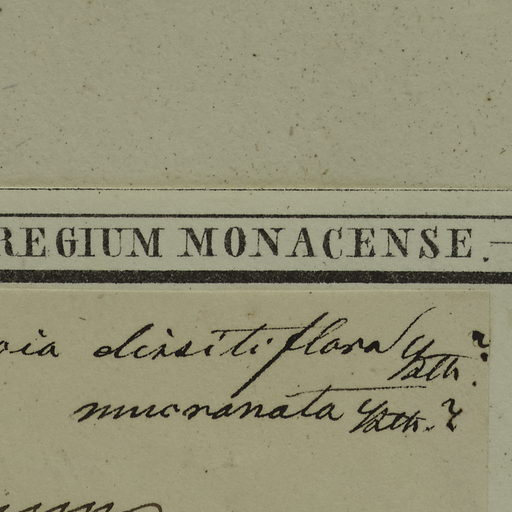 REGIUM MONACENSE.
oia dissitiflora Bth ?
mucronata Bth. ?